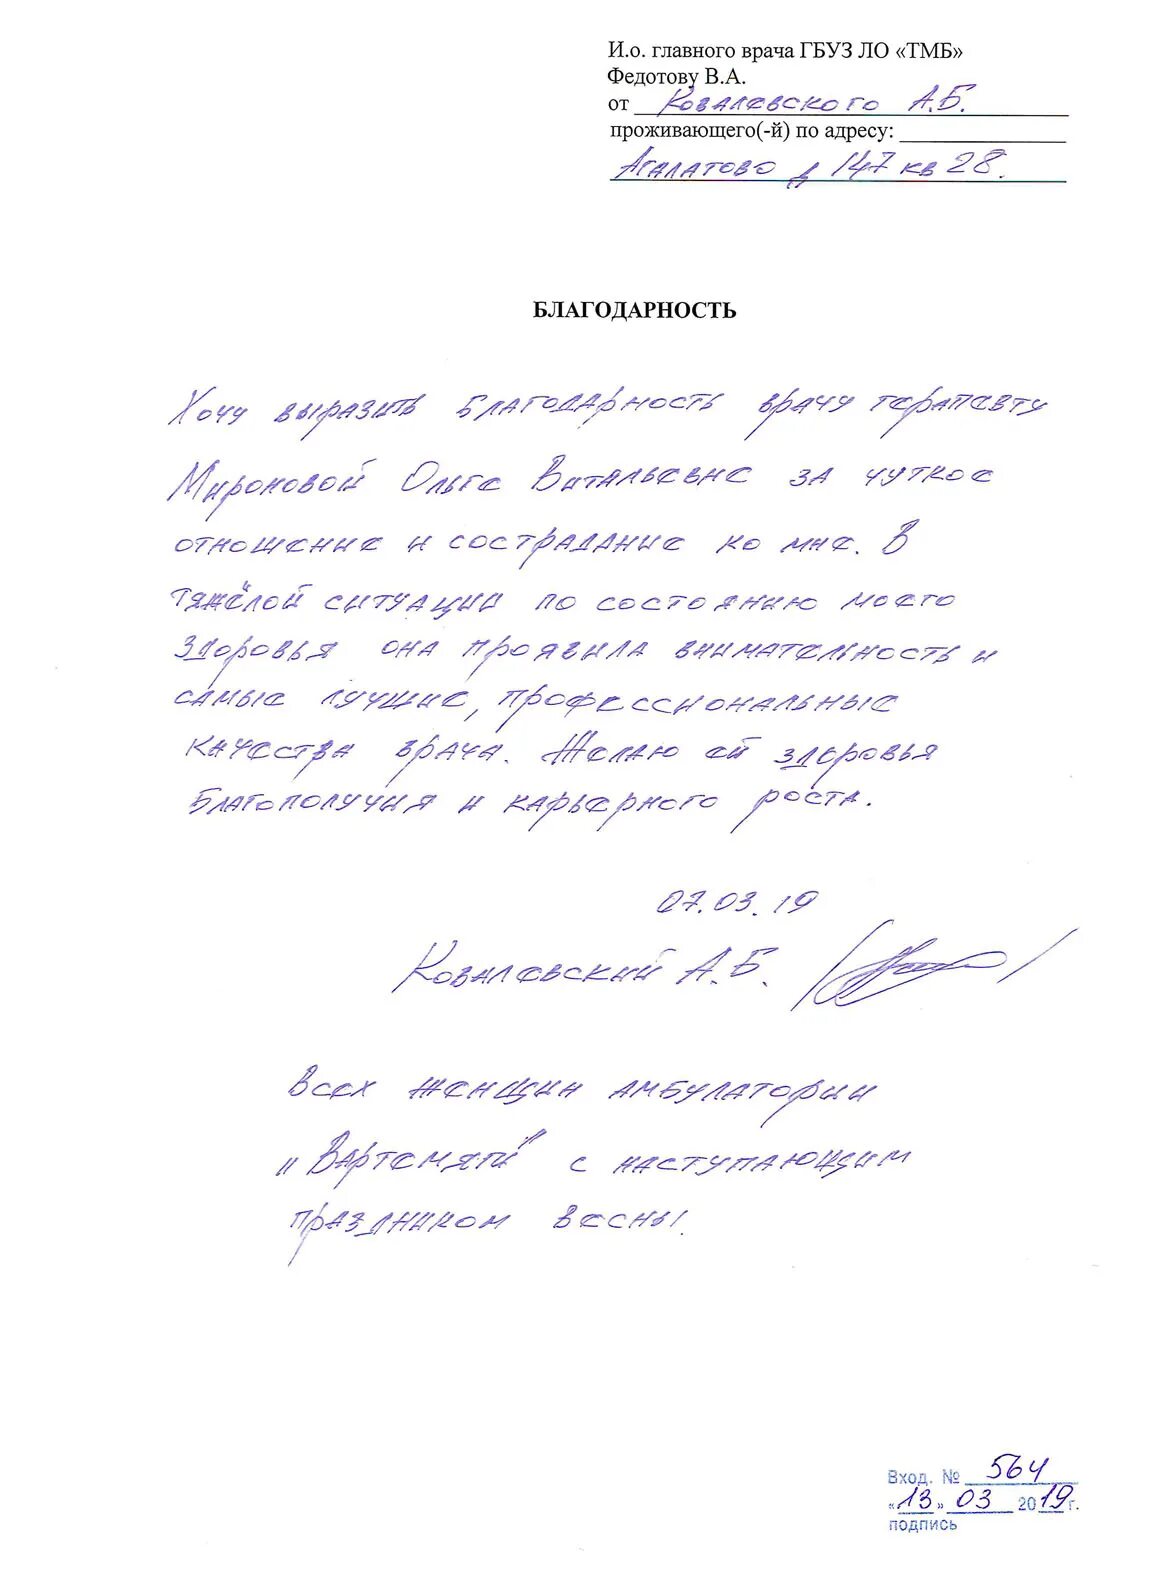 И.о. главного врача ГБУЗ ЛО «ТМБ»
Федотову В.А.
от Ковалевского А.Б.
проживающего(-й) по адресу:
Агалатово д 147 кв 28.
БЛАГОДАРНОСТЬ
Хочу выразить благодарность врачу терапевту
Мироновой Ольге Витальевне за чуткое
отношение и сострадание ко мне. В
тяжёлой ситуации по состоянию моего
здоровья она проявила внимательность и
самые лучшие, профессиональные
качества врача. Желаю ей здоровья
благополучия и карьерного роста.
07.03.19
Ковалевский А.Б.
Всех женщин амбулатории
"Вартемяги" с наступающим
праздником весны.
Вход. № 564
«13» 03 2019 г.
подпись